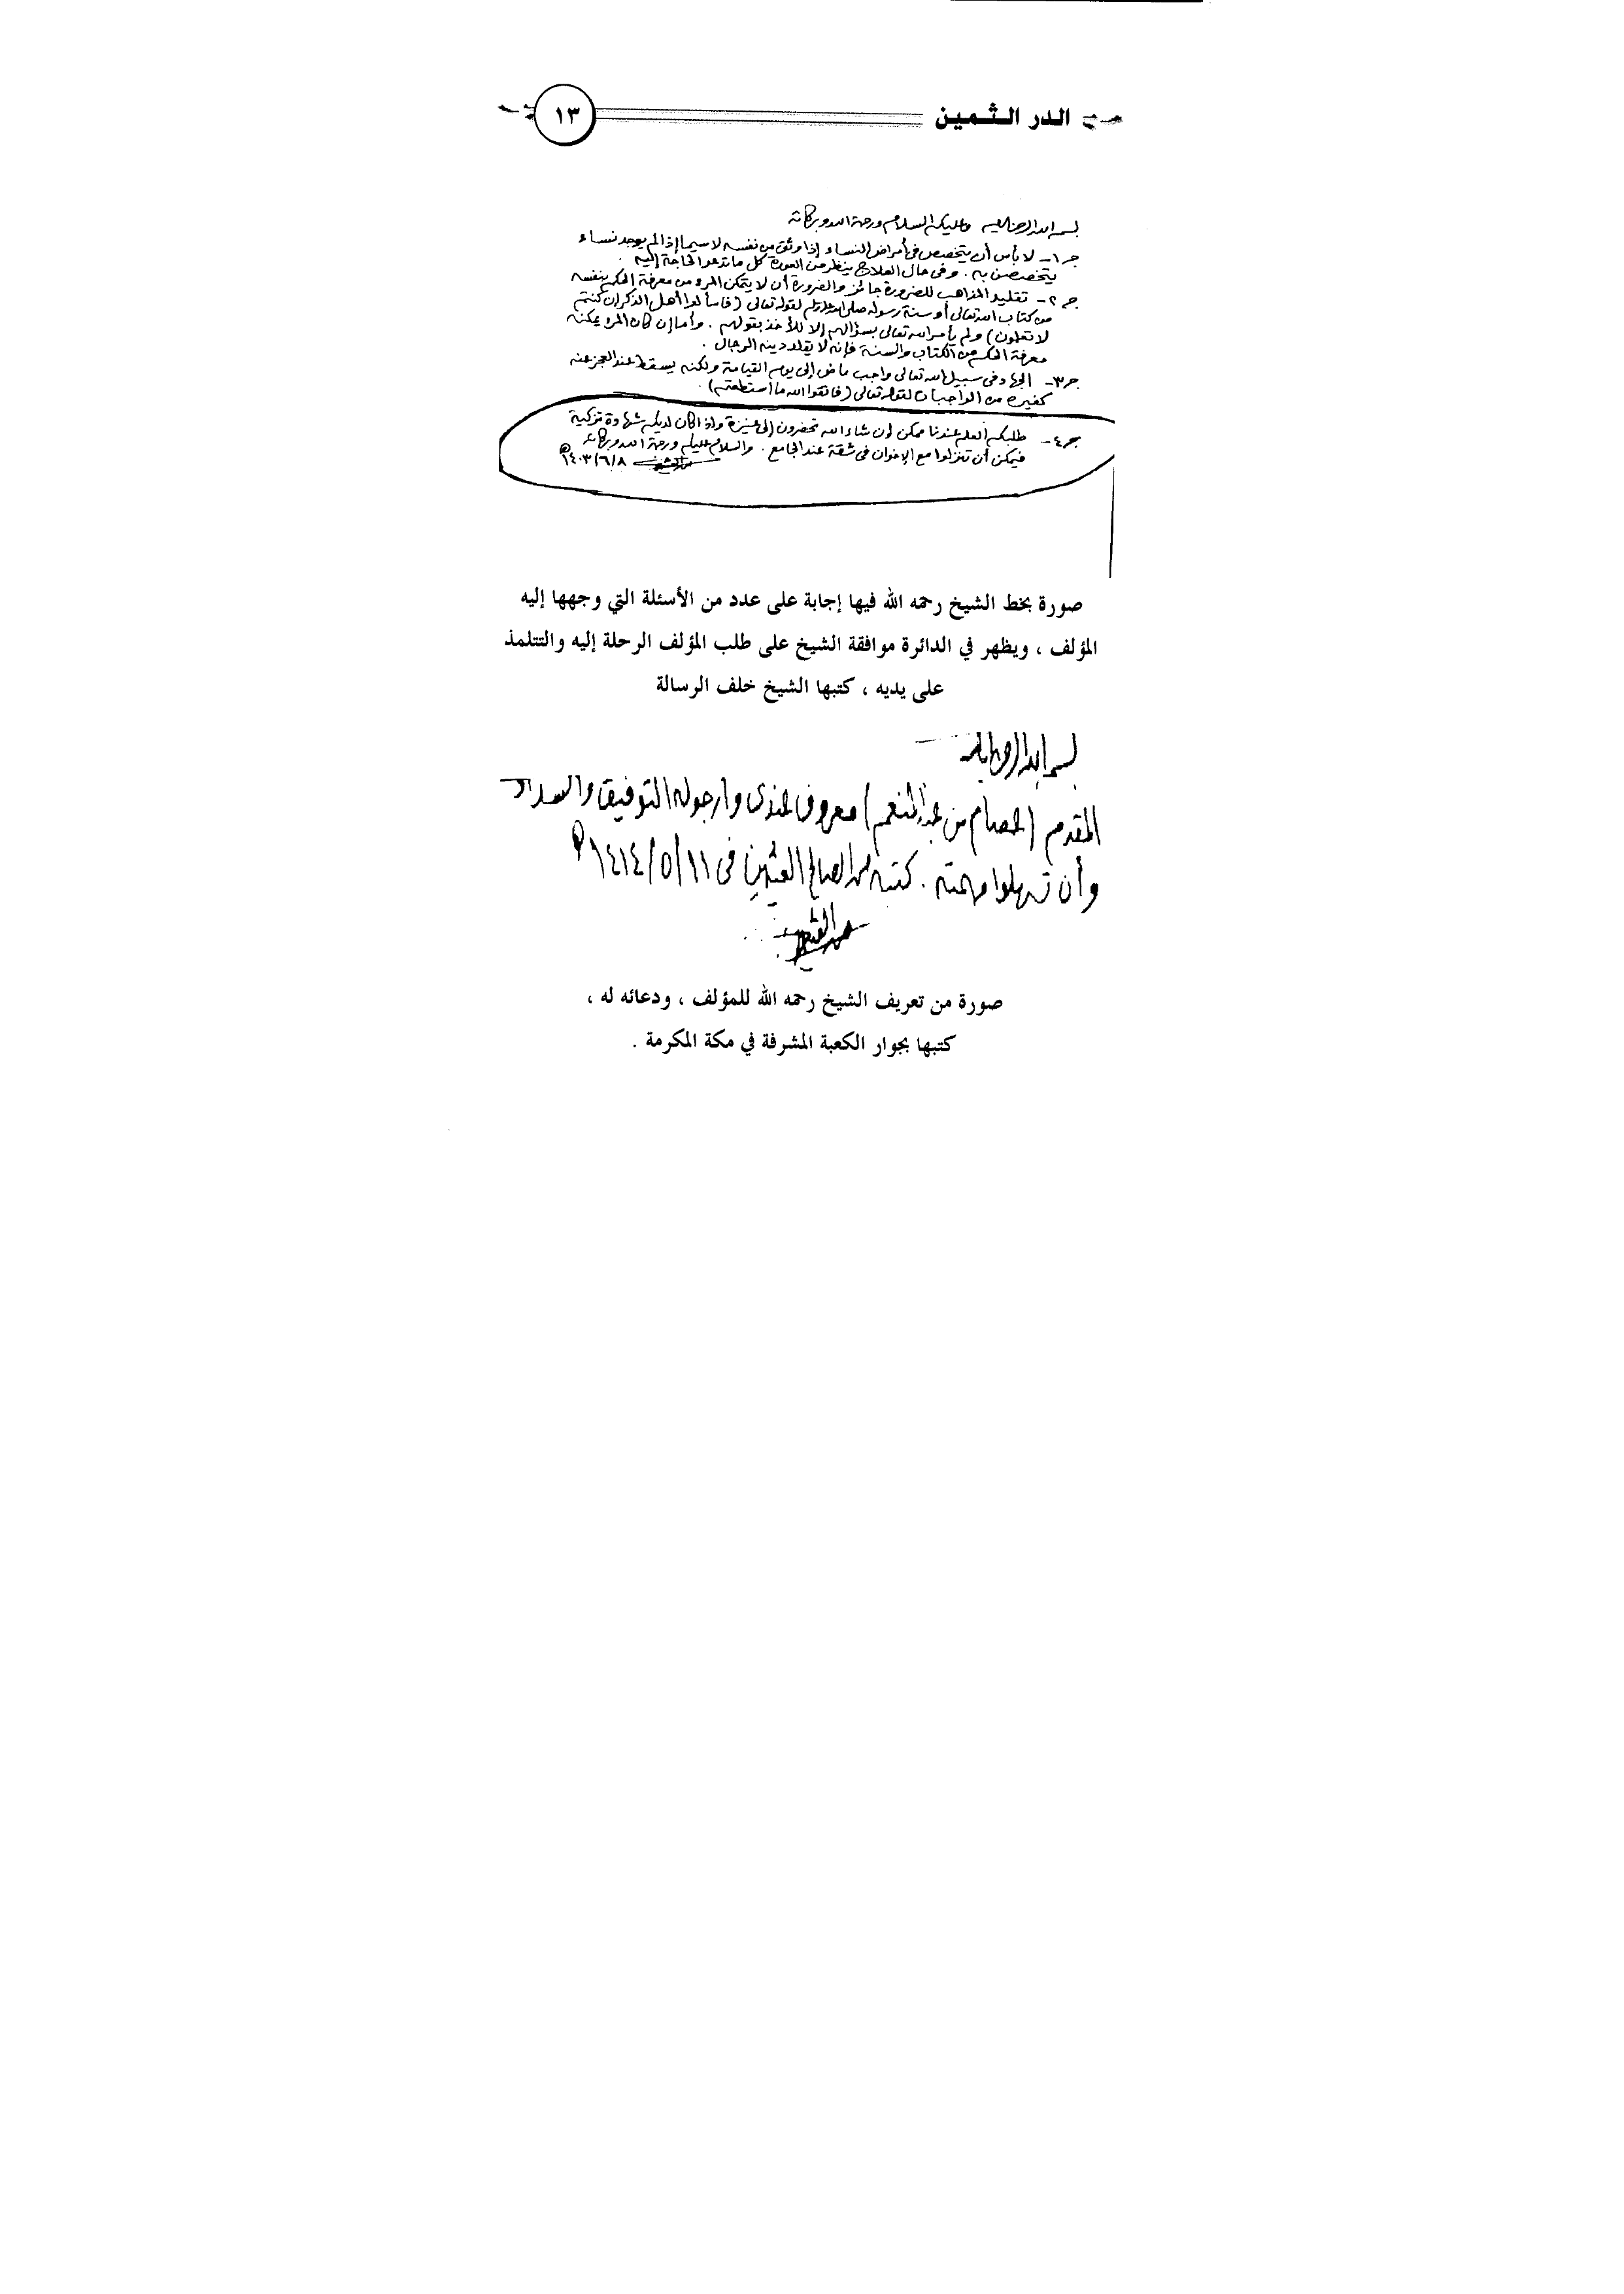 الدر الثمين ١٣
بسم الله الرحمن الرحيم وعليكم السلام ورحمة الله وبركاته
جـ ١ـ لا بأس أن يتخصص في أمراض النساء إذا وثق من نفسه لا سيما إذا لم يوجد نساء
يتخصصن به . وفي حال العلاج ينظر من العورة كل ما تدعو الحاجة إليه .
جـ ٢ـ تقليد المذاهب للضرورة جائز والضرورة أن لا يتمكن المرء من معرفة الحكم بنفسه
من كتاب الله تعالى أو سنة رسوله صلى الله عليه وسلم لقوله تعالى (فاسألوا أهل الذكر إن كنتم
لا تعلمون) ولم يأمر الله تعالى بسؤالهم إلا للأخذ بقولهم . وأما إن كان المرء يمكنه
معرفة الحكم من الكتاب والسنة فإنه لا يقلد دينه الرجال .
جـ ٣ـ الجهاد في سبيل الله تعالى واجب ماض إلى يوم القيامة ولكنه يسقط عند العجز عنه
كغيره من الواجبات لقوله تعالى (فاتقوا الله ما استطعتم) .
جـ ٤ـ طلبكم العلم عندنا ممكن إن شاء الله تحضرون إلى عنيزة وإذا كان لديكم شهادة تزكية
فيمكن أن تنزلوا مع الإخوان في شقة عند الجامع . والسلام عليكم ورحمة الله وبركاته
١٤٠٣/٦/٨هـ
صورة بخط الشيخ رحمه الله فيها إجابة على عدد من الأسئلة التي وجهها إليه
المؤلف ، ويظهر في الدائرة موافقة الشيخ على طلب المؤلف الرحلة إليه والتتلمذ
على يديه ، كتبها الشيخ خلف الرسالة
بسم الله الرحمن الرحيم
المقدم (عصام بن عبد المنعم) معروف عندي وأرجو له التوفيق والسداد
وأن تسهلوا مهمته . كتبه محمد الصالح العثيمين في ١٤١٤/٥/١١هـ
صورة من تعريف الشيخ رحمه الله للمؤلف ، ودعائه له ،
كتبها بجوار الكعبة المشرفة في مكة المكرمة .